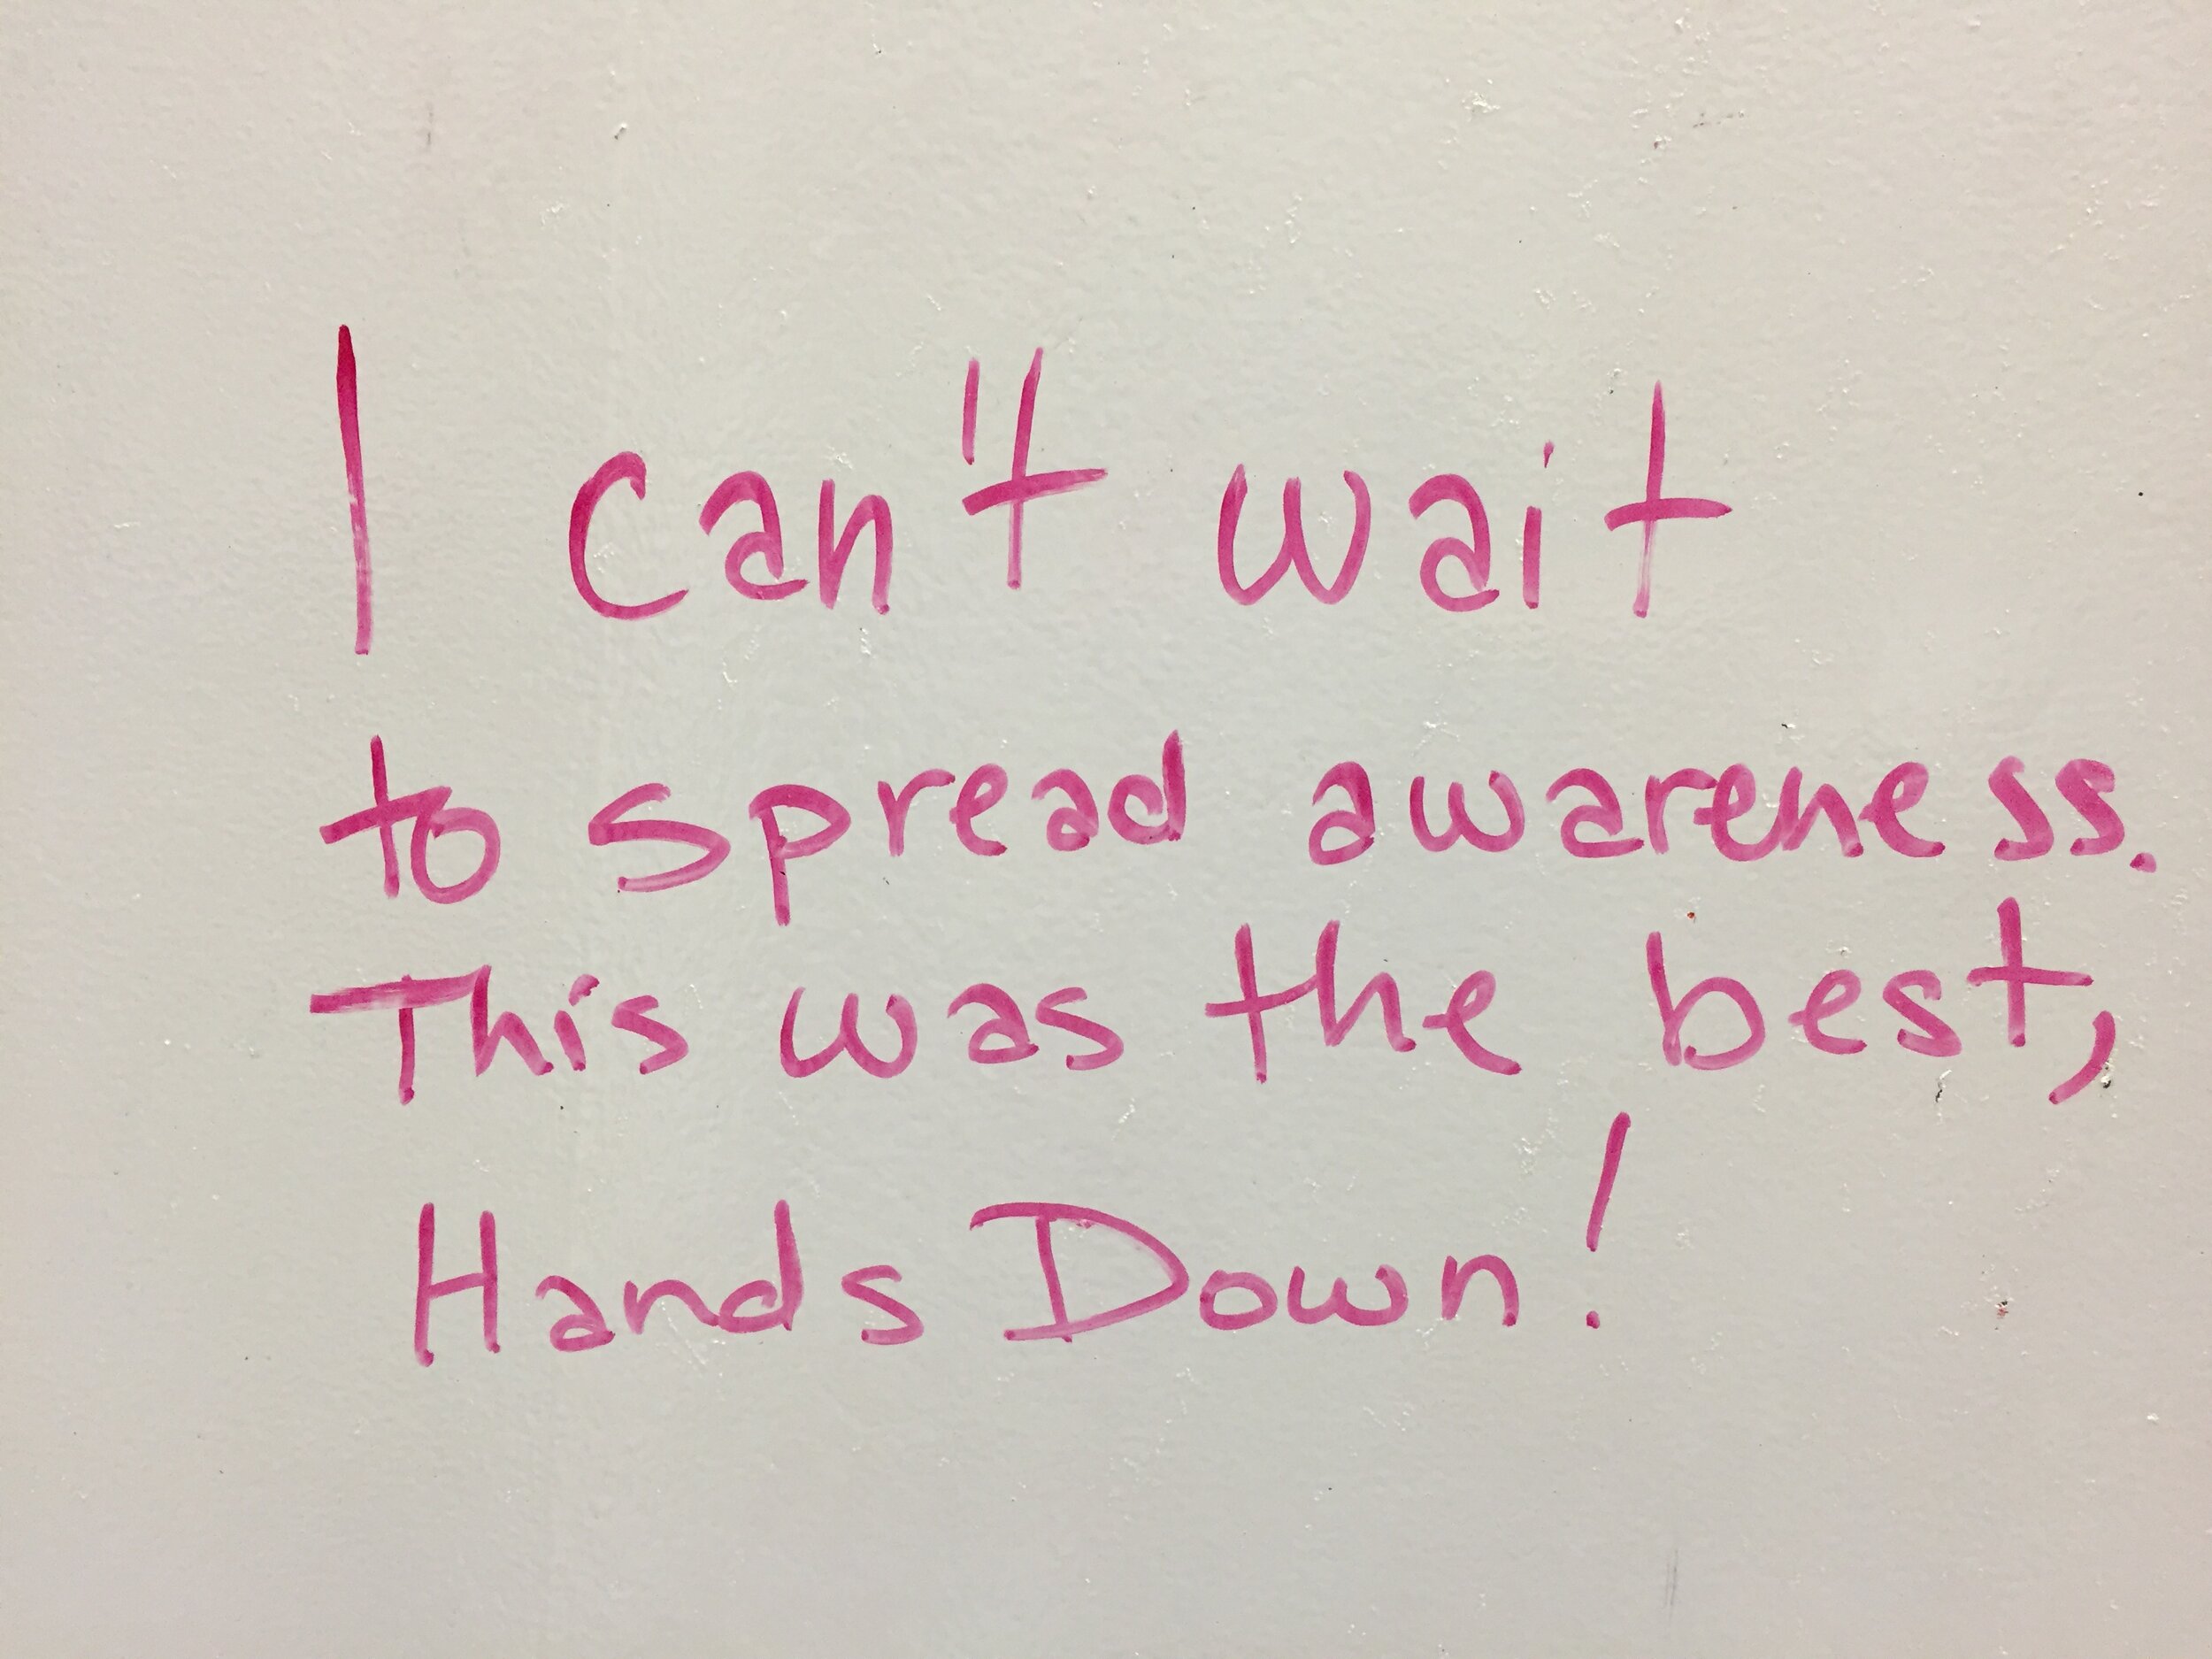 I can't wait
to spread awareness.
This was the best,
Hands Down!